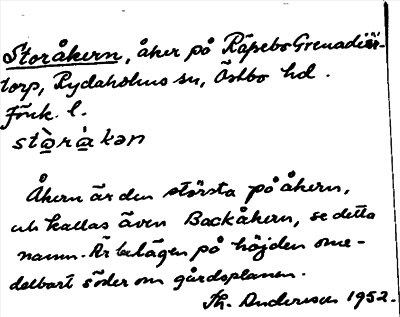 Storåkern, åker på Räpebo Grenadiär-
torp, Rydaholms sn, Östbo hd.
Jönk. l.
stò̱rá̱kən
Åkern är den största på åkern,
och kallas även Backåkern, se detta
namn. Är belägen på höjden ome-
delbart söder om gårdsplanen.
Th. Andersson 1952.